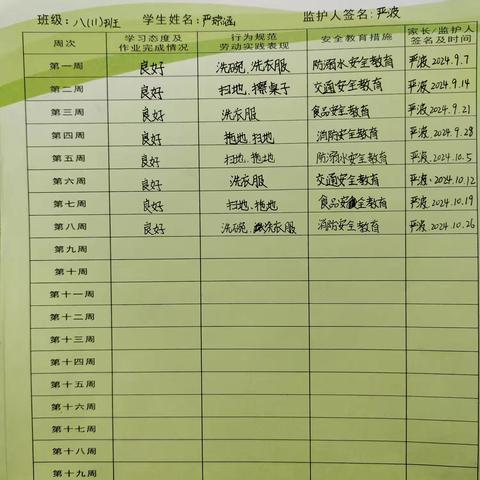 班级:八(11)班 学生姓名:严琼涵 监护人签名:严波
周次 学习态度及作业完成情况 行为规范劳动实践表现 安全教育措施 家长/监护人签名及时间
第一周 良好 洗碗,洗衣服 防溺水安全教育 严波2024.9.7
第二周 良好 扫地,擦桌子 交通安全教育 严波2024.9.14
第三周 良好 洗衣服 食品安全教育 严波2024.9.21
第四周 良好 拖地,扫地 消防安全教育 严波2024.9.28
第五周 良好 扫地,拖地 防溺水安全教育 严波2024.10.5
第六周 良好 洗衣服 交通安全教育 严波.2024.10.12
第七周 良好 扫地,拖地 食品安全教育 严波.2024.10.19
第八周 良好 洗碗,洗衣服 消防安全教育 严波.2024.10.26
第九周
第十周
第十一周
第十二周
第十三周
第十四周
第十五周
第十六周
第十七周
第十八周
第十九周